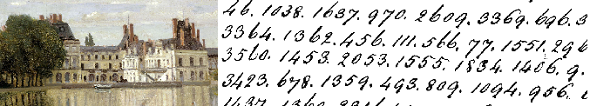 46. 1038. 1637. 970. 2609. 3369. 696. 3
3364. 1362. 456. 111. 566, 77. 1551. 296
3560. 1453. 2053. 1555. 1834. 1406. 9.
3423. 678. 1359. 493. 809. 1094. 956.